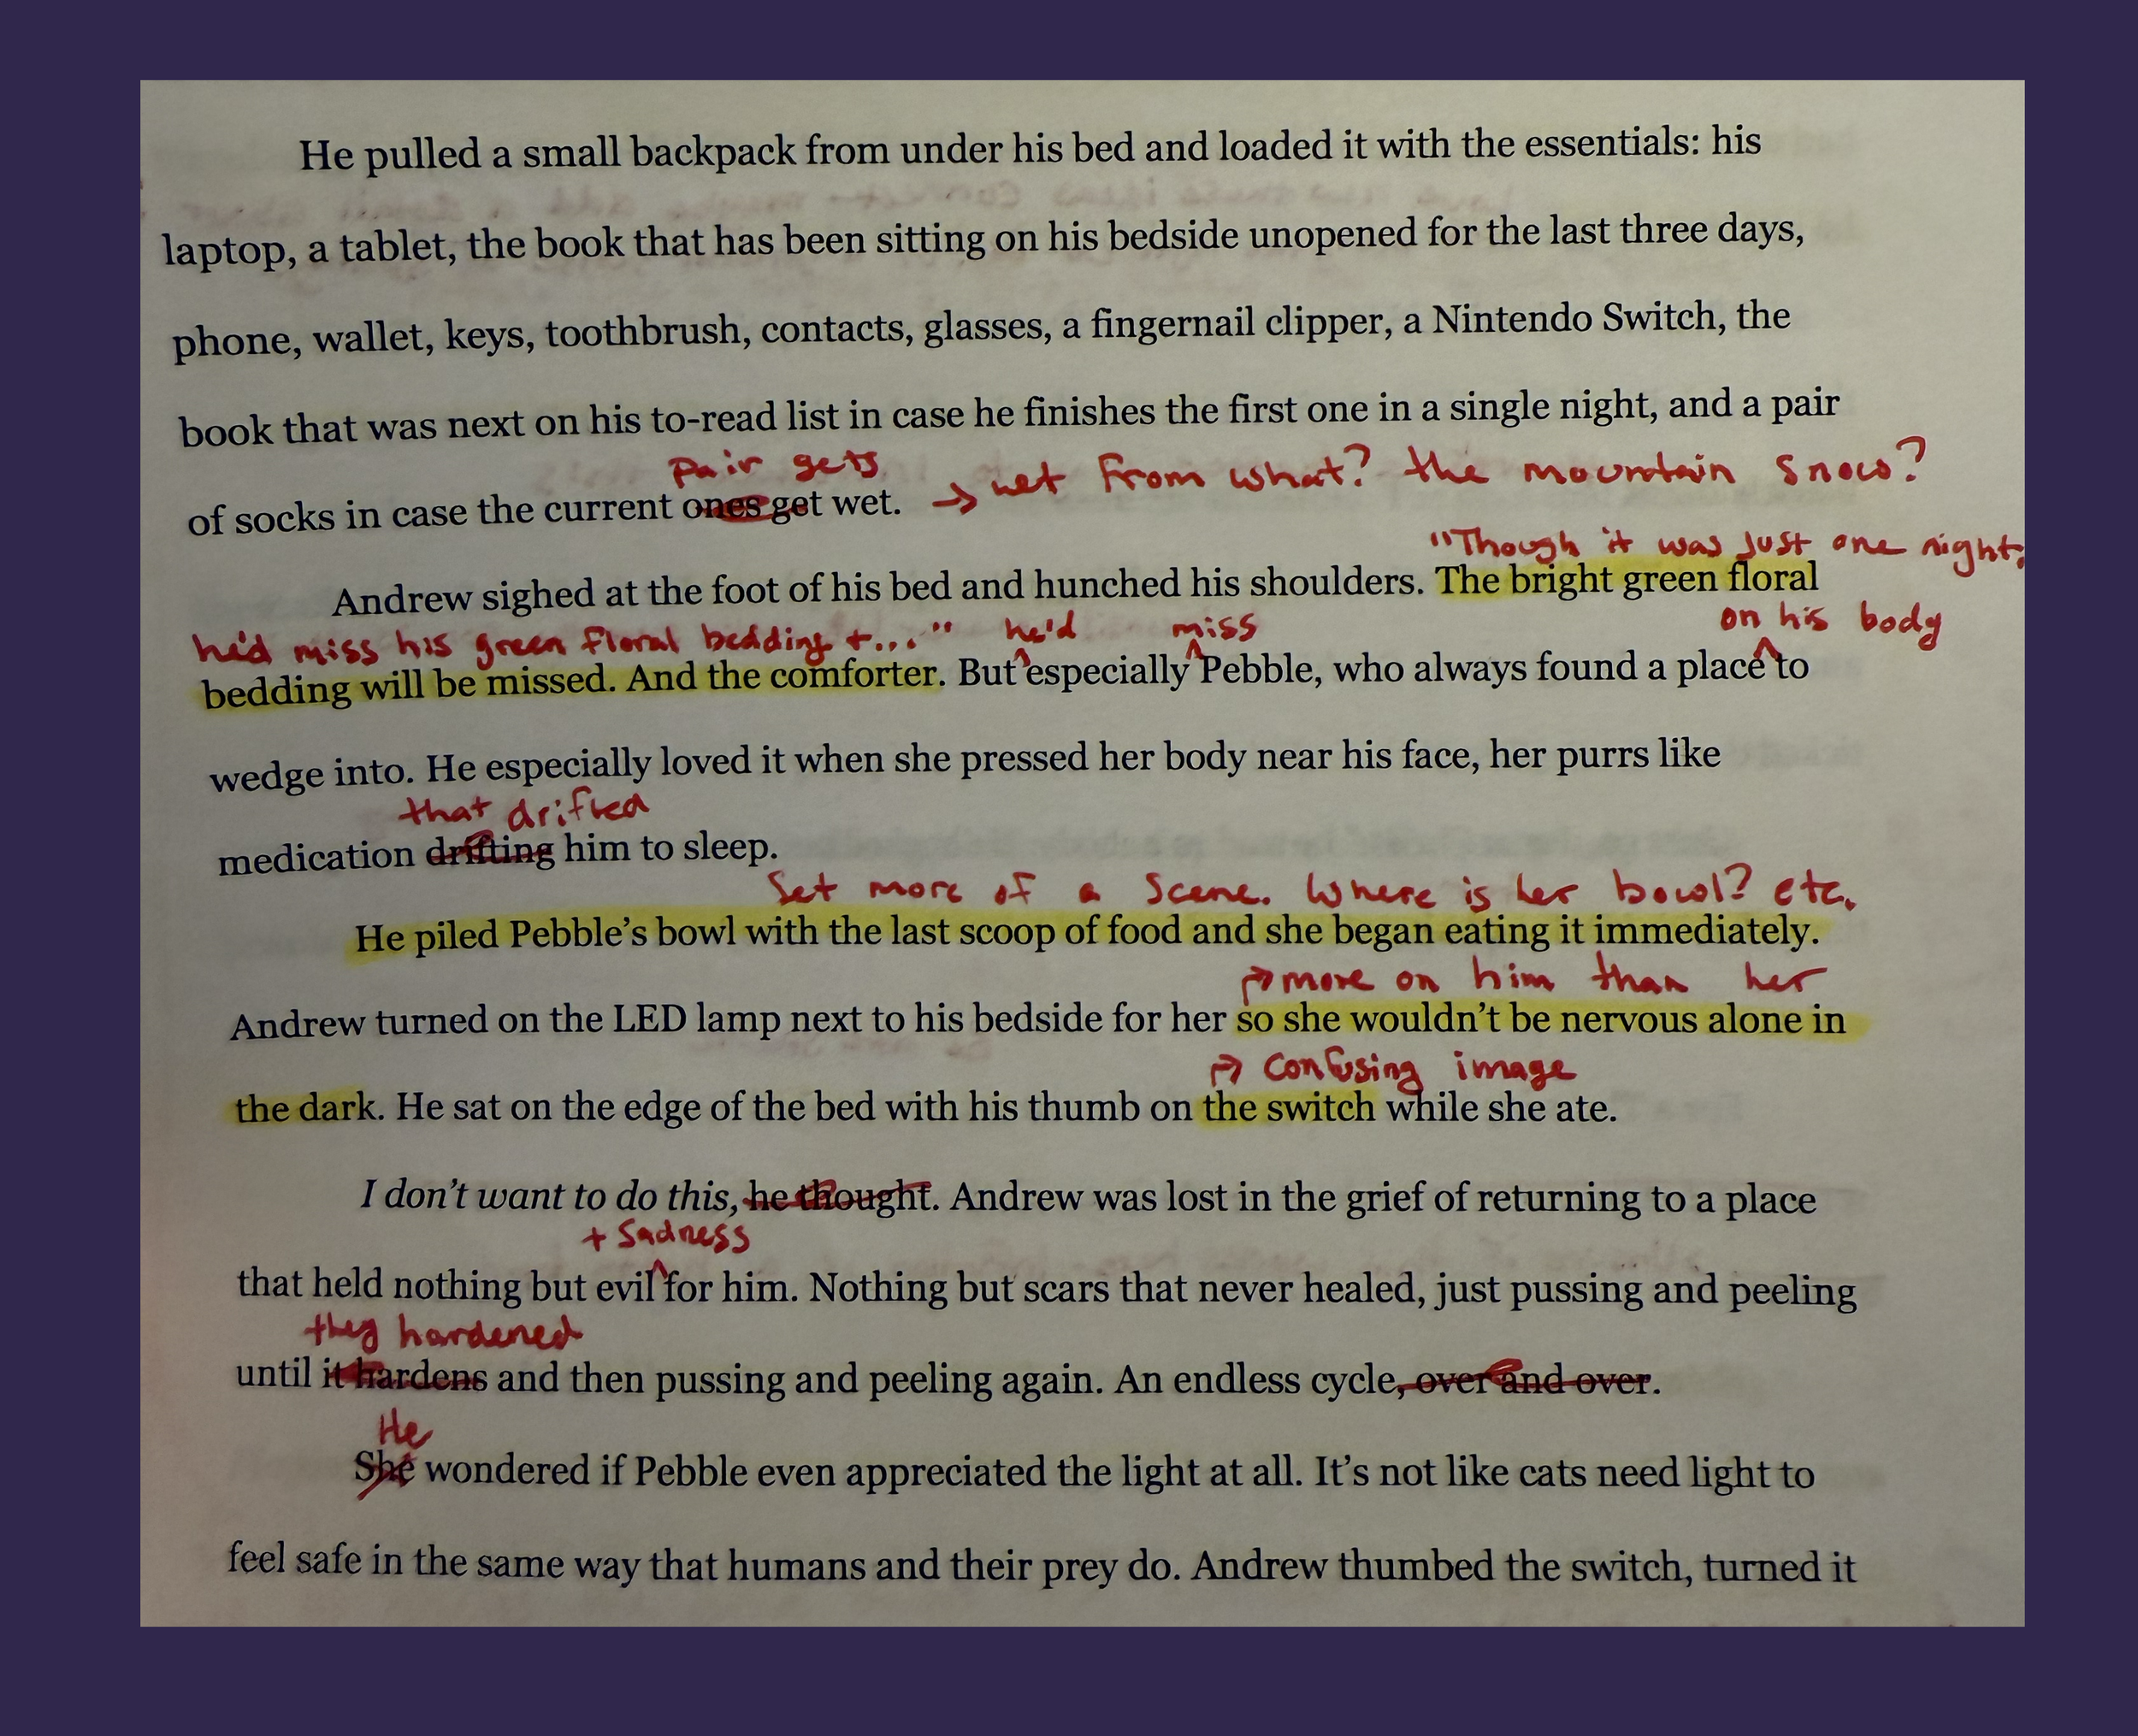 He pulled a small backpack from under his bed and loaded it with the essentials: his
laptop, a tablet, the book that has been sitting on his bedside unopened for the last three days,
phone, wallet, keys, toothbrush, contacts, glasses, a fingernail clipper, a Nintendo Switch, the
book that was next on his to-read list in case he finishes the first one in a single night, and a pair
pair gets
of socks in case the current ones get wet. → wet from what? the mountain snow?
"Though it was just one night,
Andrew sighed at the foot of his bed and hunched his shoulders. The bright green floral
he'd miss his green floral bedding +..." he'd miss on his body
bedding will be missed. And the comforter. But especially Pebble, who always found a place to
wedge into. He especially loved it when she pressed her body near his face, her purrs like
that drifted
medication drifting him to sleep.
Set more of a scene. Where is her bowl? etc.
He piled Pebble's bowl with the last scoop of food and she began eating it immediately.
→ more on him than her
Andrew turned on the LED lamp next to his bedside for her so she wouldn't be nervous alone in
→ confusing image
the dark. He sat on the edge of the bed with his thumb on the switch while she ate.
I don't want to do this, he thought. Andrew was lost in the grief of returning to a place
+ sadness
that held nothing but evil for him. Nothing but scars that never healed, just pussing and peeling
they hardened
until it hardens and then pussing and peeling again. An endless cycle, over and over.
He
She wondered if Pebble even appreciated the light at all. It's not like cats need light to
feel safe in the same way that humans and their prey do. Andrew thumbed the switch, turned it